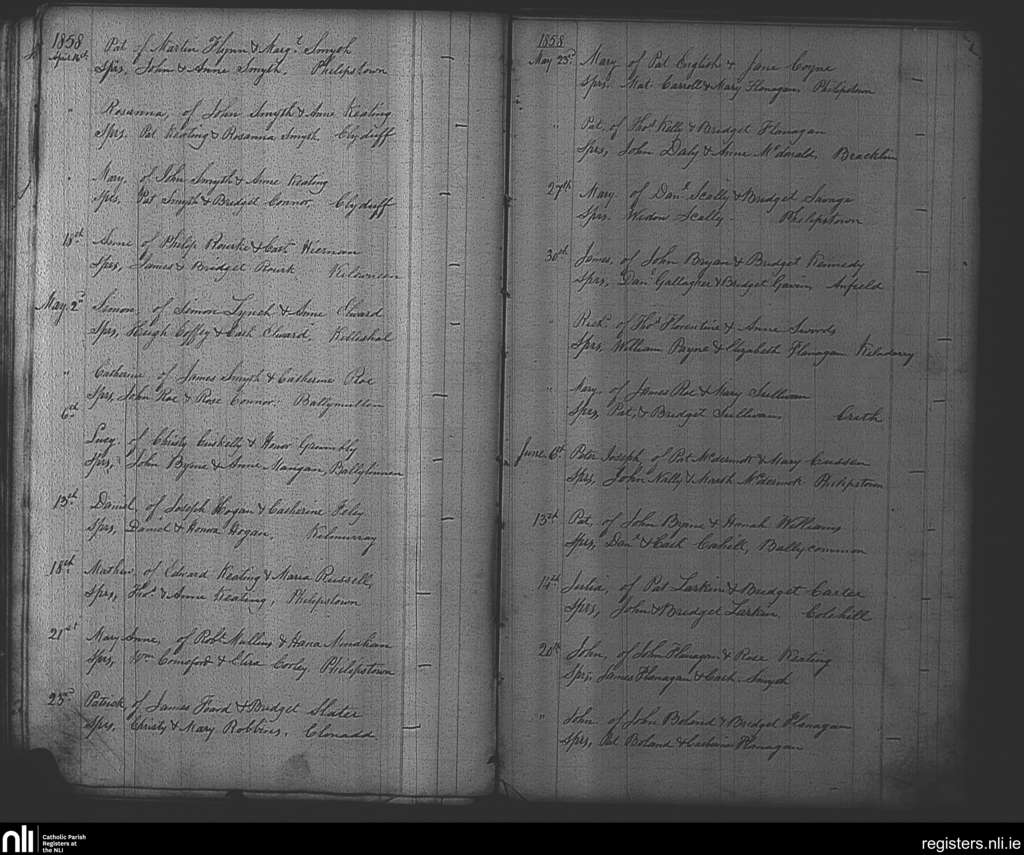 1858
April 14th Pat of Martin Flynn & Margt Smyth
Sprs, John & Anne Smyth, Philipstown
" Rosanna, of John Smyth & Anne Keating
Sprs, Pat Keating & Rosanna Smyth Clyduff
" Mary, of John Smyth & Anne Keating
Sprs, Pat Smyth & Bridget Connor, Clyduff
18th Anne of Philip Rourke & Cath Hiernan
Sprs, James & Bridget Rourk
May 2d Simon, of Simon Lynch & Anne Elward
Sprs, Hugh Coffey & Cath Elward, Killeshal
" Catherine of James Smyth & Catherine Roe
Sprs John Roe & Rose Connor, Ballymullen
6th
Lucy of Christy Cuskelly & Honor
Sprs, John Byrne & Anne Manigan,
13th Daniel, of Joseph Hogan & Catherine Foley
Sprs, Daniel & Honora Hogan, Kilmurray
18th Mathew of Edward Keating & Maria Russell,
Sprs, Thos & Anne Keating, Philipstown
21st Mary Anne, of Robt Mullins & Hana
Sprs, Wm & Eliza Cooley Philipstown
23rd Patrick of James Heard & Bridget Slater
Sprs, Christy & Mary Robbins, Clonadd
1858
May 23rd Mary of Pat English & Jane Coyne
Sprs, Mat Carroll & Mary Flanagan, Philipstown
" Pat, of Thos Kelly & Bridget Flanagan
Sprs, John Daly & Anne McDonald, Bracklin
27th Mary of Danl Scally & Bridget Savage
Sprs, Widow Scally - Philipstown
30th James, of John Bryan & Bridget Kennedy
Sprs, Danl Gallagher & Bridget Gavin
" Richd of Thos Florentine & Anne Swords
Sprs, William Payne & Elizabeth Flanagan
" Mary of James Roe & Mary Sullivan
Sprs, Pat, & Bridget Sullivan, Crith
June 6th Peter Joseph of Pat McDermott & Mary
Sprs, John Nally & McDermott Philipstown
13th Pat, of John Byrne & Hanah Williams
Sprs, Danl & Cath Cahill, Ballycommon
14th Julia, of Pat Larkin & Bridget Carter
Sprs, John & Bridget Larkin, Colehill
20th John, of John Flanagan & Rose Keating
Sprs, James Flanagan & Cath Smyth
" John of John Boland & Bridget Flanagan
Sprs, Pat Boland & Catherine Flanagan
nli
Catholic Parish
Registers at
the NLI
registers.nli.ie